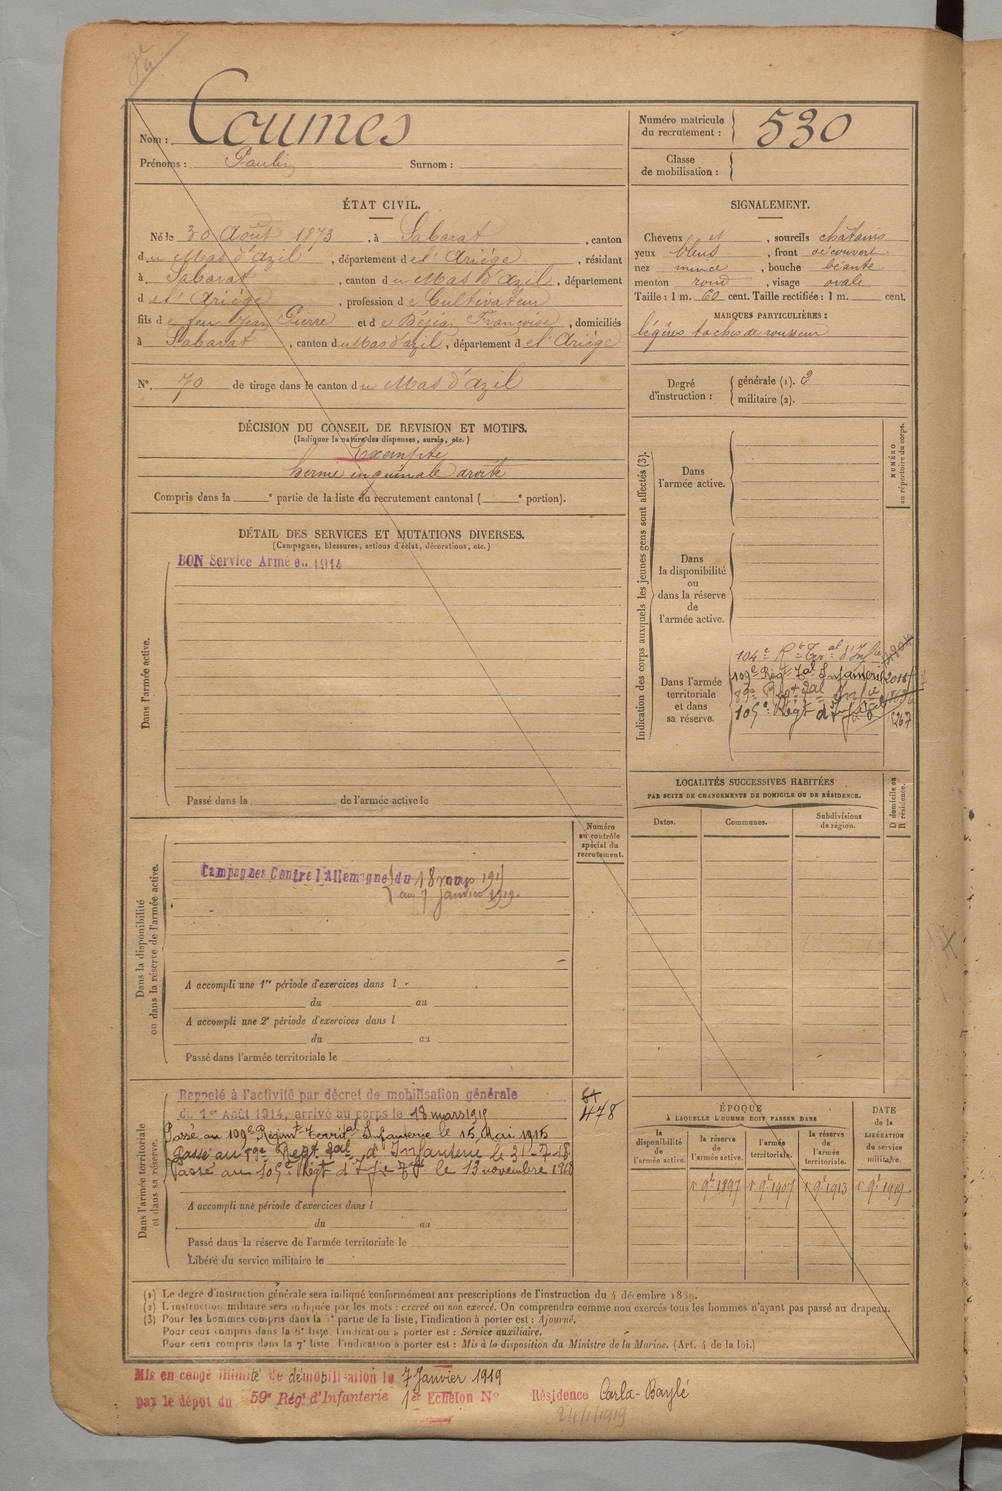 Nom : Coumes
Prénoms : Paulin Surnom :
Numéro matricule du recrutement : 530
Classe de mobilisation :
ÉTAT CIVIL.
Né le 30 Août 1873, à Sabarat, canton
du Mas d'azil, département de l'Ariége, résidant
à Sabarat, canton du Mas d'Azil, département
de l'Ariége, profession de Cultivateur
fils de feu Jean Pierre et de Béjian Françoise, domiciliés
à Sabarat, canton du Mas d'azil, département de l'Ariége
N°. 70 de tirage dans le canton du Mas d'azil
SIGNALEMENT.
Cheveux et, sourcils chatains
yeux bleus, front découvert
nez mince, bouche béante
menton rond, visage ovale
Taille : 1 m. 60 cent. Taille rectifiée : 1 m. cent.
MARQUES PARTICULIÈRES :
légères taches de rousseur
Degré d'instruction : générale (1). 2
militaire (2).
DÉCISION DU CONSEIL DE REVISION ET MOTIFS.
(Indiquer la nature des dispenses, sursis, etc.)
Exempté
hernie inguinale droite
Compris dans la e partie de la liste du recrutement cantonal ( e portion).
DÉTAIL DES SERVICES ET MUTATIONS DIVERSES.
(Campagnes, blessures, actions d'éclat, décorations, etc.)
Dans l'armée active.
BON Service Armé en 1914
Passé dans la de l'armée active le
Indication des corps auxquels les jeunes gens sont affectés (3).
NUMÉRO au répertoire du corps.
Dans l'armée active.
Dans la disponibilité ou dans la réserve de l'armée active.
Dans l'armée territoriale et dans sa réserve.
104e Rt Ter.al d'Inf.ie
109e Régt Tal Infanterie 2016
89e Regt Tal Inf.ie
105e Régt d'Inf.ie 8267
LOCALITÉS SUCCESSIVES HABITÉES
PAR SUITE DE CHANGEMENTS DE DOMICILE OU DE RÉSIDENCE.
Dates. Communes. Subdivisions de région. D domicile ou R résidence.
Numéro au contrôle spécial du recrutement.
Dans la disponibilité ou dans la réserve de l'armée active.
Campagnes Contre l'Allemagne du 18 mars 1915
au 7 Janvier 1919.
A accompli une 1re période d'exercices dans l
du au
A accompli une 2e période d'exercices dans l
du au
Passé dans l'armée territoriale le
Dans l'armée territoriale et dans sa réserve.
Rappelé à l'activité par décret de mobilisation générale
du 1er Août 1914, arrivé au corps le 18 mars 1915
478
Passé au 109e Régimt Territal Infanterie le 15 Mai 1915
Passé au 89e Regt Tal d'Infanterie le 31-7-18
Passé au 105e Régt d'Inf.ie Tle le 13 novembre 1918
A accompli une période d'exercices dans l
du au
Passé dans la réserve de l'armée territoriale le
Libéré du service militaire le
ÉPOQUE
À LAQUELLE L'HOMME DOIT PASSER DANS
la disponibilité de l'armée active. la réserve de l'armée active. l'armée territoriale. la réserve de l'armée territoriale.
DATE de la LIBÉRATION du service militaire.
1897 1907 1913 1919
(1) Le degré d'instruction générale sera indiqué conformément aux prescriptions de l'instruction du 4 décembre 1889.
(2) L'instruction militaire sera indiquée par les mots : exercé ou non exercé. On comprendra comme non exercés tous les hommes n'ayant pas passé au drapeau.
(3) Pour les hommes compris dans la 5e partie de la liste, l'indication à porter est : Ajourné.
Pour ceux compris dans la 6e liste, l'indication à porter est : Service auxiliaire.
Pour ceux compris dans la 7e liste, l'indication à porter est : Mis à la disposition du Ministre de la Marine. (Art. 4 de la loi.)
Mis en congé illimité de démobilisation le 7 Janvier 1919
par le dépot du 59e Régt d'Infanterie 1er Echelon N° Résidence Carla-Baylé
24/1/1919